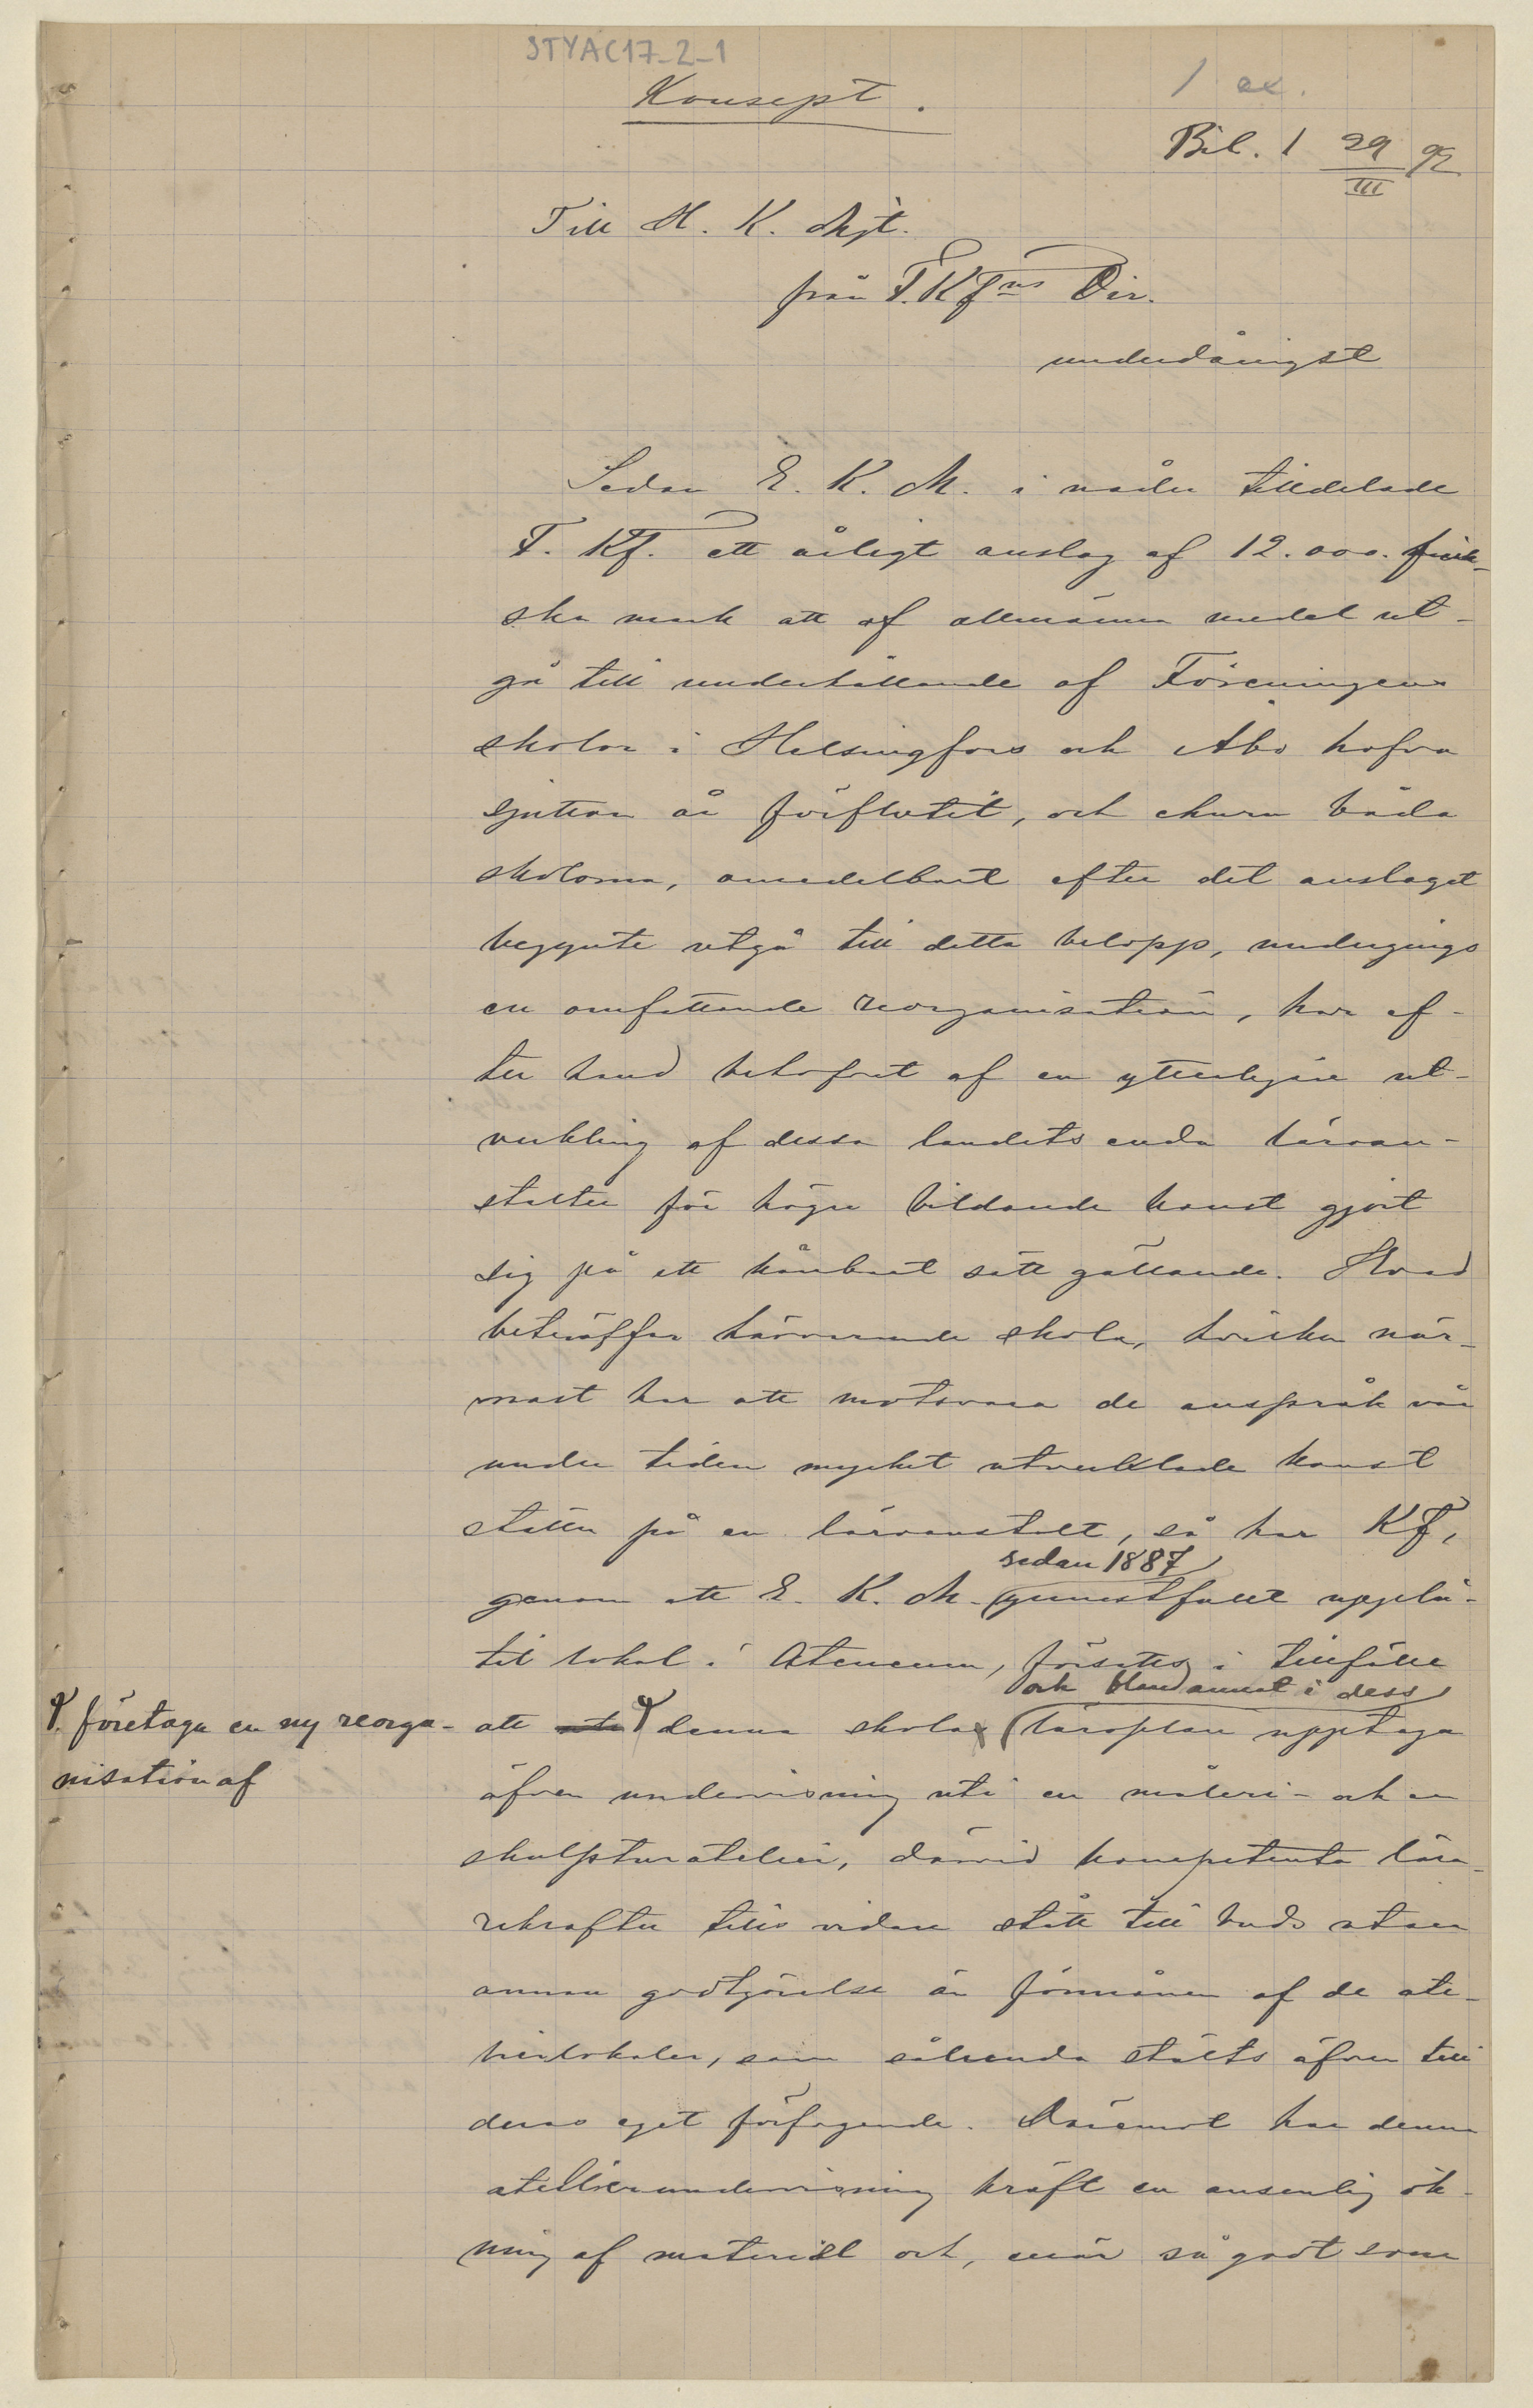 STYAC17-2-1
Konsept.
1 ex.
Bil. 1 29/III 92
Till H. K. Mjt.
från F. Kfns Dir.
underdånigst
Sedan E. K. M. i nåder tilldelade
F. Kf. ett årligt anslag af 12.000. fin-
ska mark att af allmänna medel ut-
gå till underhållande af Föreningens
skolor i Helsingfors och Åbo hafva
sjutton år förflutit, och ehuru båda
skolorna, omedelbart efter det anslaget
begynte utgå till detta belopp, undergingo
en omfattande reorganisation, har ef-
ter hand behofvet af en ytterligare ut-
veckling af dessa landets enda läroan-
stalter för högre bildande konst gjort
sig på ett kännbart sätt gällande. Hvad
beträffar härvarande skola, hvilken när-
mast har att motsvara de anspråk vår
under tiden mycket utvecklade konst
ställer på en läroanstalt, så har KF,
sedan 1887
genom att E. K. M. gunstfullt upplå-
tit lokal i Ateneum, försatts i tillfälle
och bland annat i dess
att uti denna skolas läroplan upptaga
företaga en ny reorga-
nisation af
äfven undervisning uti en måleri- och en
skulpturatelier, därvid kompetenta lära-
rekrafter tills vidare stått till buds utan
annan godtgörelse än förmånen af de ate-
lierlokaler, som sålunda stälts äfven till
deras eget förfogande. Däremot har denna
atellierundervisning kräft en ansenlig ök-
ning af materiel och, enär så godt som